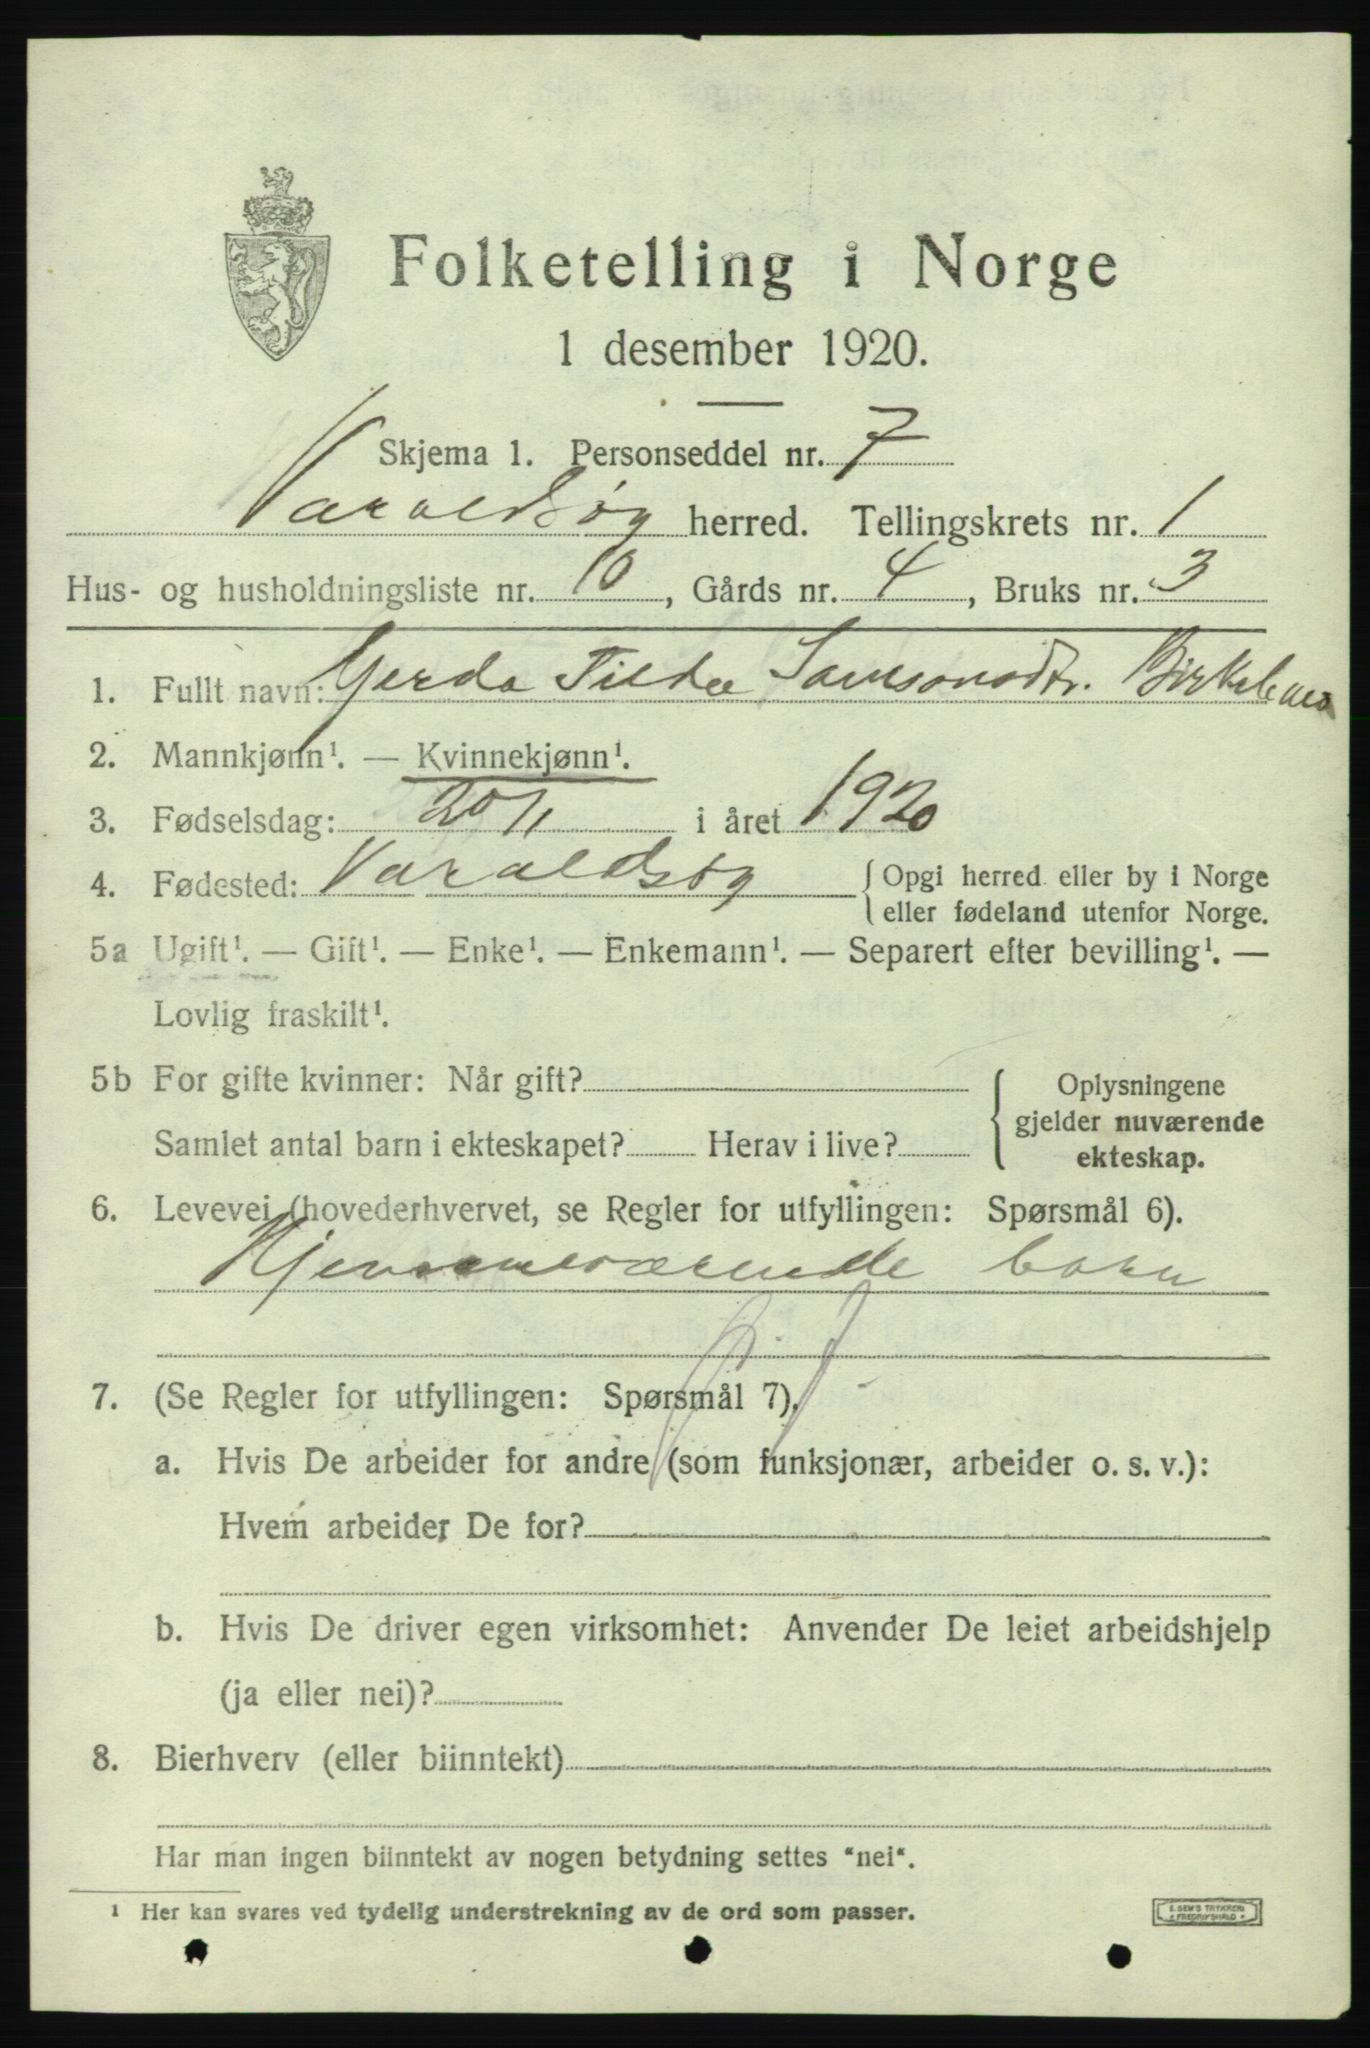 Folketelling i Norge
1 desember 1920.
Skjema 1. Personseddel nr. 7
Varaldsøy herred. Tellingskrets nr. 1
Hus- og husholdningsliste nr. 10, Gårds nr. 4, Bruks nr. 3
1. Fullt navn: Gerda Tilda Samsonsdtr.
2. Mannkjønn¹. — Kvinnekjønn¹.
3. Fødselsdag: 20/11 i året 1920
4. Fødested: Varaldsøy { Opgi herred eller by i Norge
eller fødeland utenfor Norge.
5a Ugift¹. — Gift¹. — Enke¹. — Enkemann¹. — Separert efter bevilling¹. —
Lovlig fraskilt¹.
5b For gifte kvinner: Når gift?
Samlet antal barn i ekteskapet? Herav i live?
{ Oplysningene
gjelder nuværende
ekteskap.
6. Levevei (hovederhvervet, se Regler for utfyllingen: Spørsmål 6).
Hjemmeværende barn
7. (Se Regler for utfyllingen: Spørsmål 7).
a. Hvis De arbeider for andre (som funksjonær, arbeider o. s. v.):
Hvem arbeider De for?
b. Hvis De driver egen virksomhet: Anvender De leiet arbeidshjelp
(ja eller nei)?
8. Bierhverv (eller biinntekt)
Har man ingen biinntekt av nogen betydning settes "nei".
¹ Her kan svares ved tydelig understrekning av de ord som passer.
E. SEM'S TRYKKERI
FREDRIKSHALD